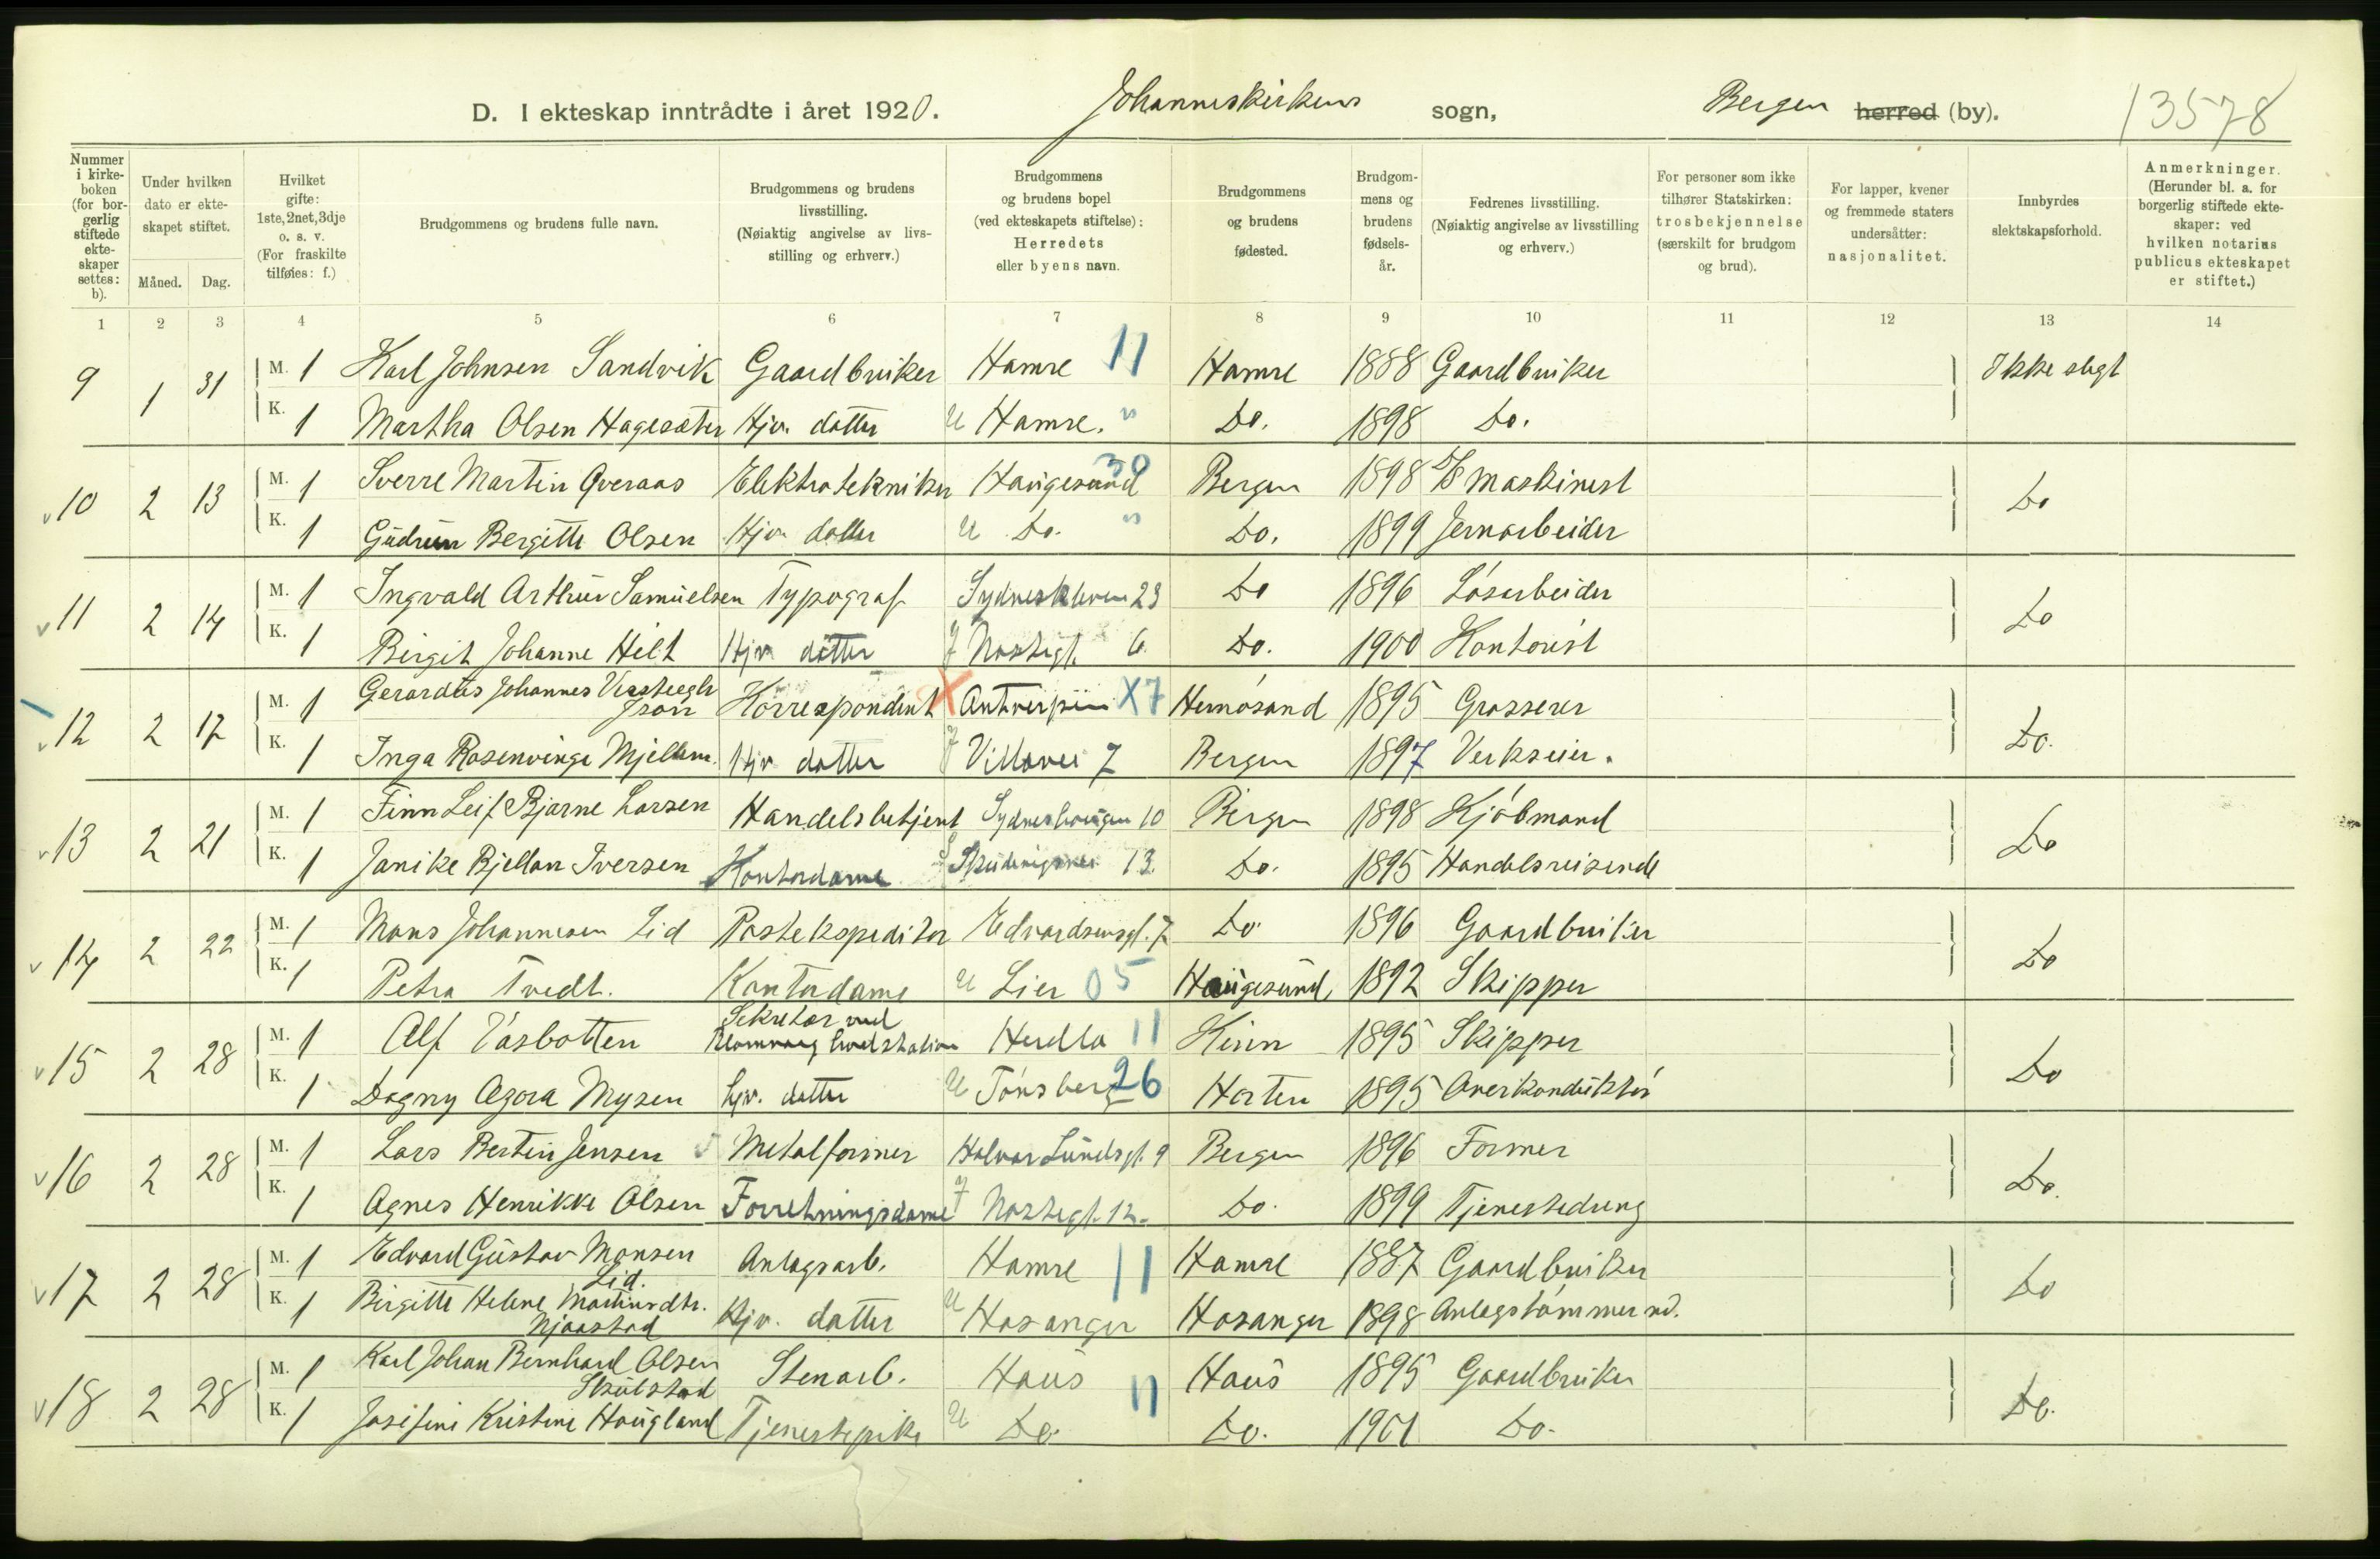 D. I ekteskap inntrådte i året 1920. Johanneskirkens sogn, Bergen herred (by). 13578
Nummer i kirkeboken (for borgerlig stiftede ekteskaper settes: b).
Under hvilken dato er ekteskapet stiftet.
Måned. Dag.
Hvilket gifte: 1ste, 2net, 3dje o. s. v. (For fraskilte tilføies: f.)
Brudgommens og brudens fulle navn.
Brudgommens og brudens livsstilling. (Nøiaktig angivelse av livsstilling og erhverv.)
Brudgommens og brudens bopel (ved ekteskapets stiftelse): Herredets eller byens navn.
Brudgommens og brudens fødested.
Brudgommens og brudens fødselsår.
Fedrenes livsstilling. (Nøiaktig angivelse av livsstilling og erhverv.)
For personer som ikke tilhører Statskirken: trosbekjennelse (særskilt for brudgom og brud).
For lapper, kvener og fremmede staters undersåtter: nasjonalitet.
Innbyrdes slektskapsforhold.
Anmerkninger. (Herunder bl. a. for borgerlig stiftede ekteskaper: ved hvilken notarius publicus ekteskapet er stiftet.)
1 2 3 4 5 6 7 8 9 10 11 12 13 14
9 1 31 M. 1 Karl Johnsen Sandvik Gaardbruker Hamre 11 Hamre 1888 Gaardbruker Ikke slegt
K. 1 Martha Olsen Hagesæter Hjv. datter U Hamre. " Do. 1898 Do.
10 2 13 M. 1 Sverre Martin Qveraas Elektrotekniker Haugesund 30 Bergen 1898 D/S Maskinist Do
K. 1 Gudrun Bergitte Olsen Hjv. datter U Do. " Do. 1899 Jernarbeider
11 2 14 M. 1 Ingvald Arthur Samuelsen Typograf Sydneskleven 23 Do 1896 Løsarbeider Do
K. 1 Birgit Johanne Hilt Hjv. datter J Nøstegt. 6 Do. 1900 Kontorist
12 2 17 M. 1 Gerardus Johannes Versteegh Json Korrespondent X Antverpen X7 Hernøsand 1895 Grosserer Do.
K. 1 Inga Rosenvinge Mjellem. Hjv. datter J Villavei 7 Bergen 1897 Verkseier.
13 2 21 M. 1 Finn Leif Bjarne Larsen Handelsbetjent Sydneshaugen 10 Bergen 1898 Kjøbmand Do
K. 1 Janike Bjellan Iversen Kontordame 13. Do. 1895 Handelsreisende
14 2 22 M. 1 Mons Johannesen Lid Postekspeditør Edvardsensgt. 7 Do. 1896 Gaardbruker Do
K. 1 Petra Tvedt. Kontordame U Lier 05 Haugesund, 1892 Skipper
15 2 28 M. 1 Alf Vasbotten Sekretær ved Herdla 11 Kinn 1895 Skipper Do
K. 1 Dagny Agora Mysen hjv. datter U Tønsberg 26 Horten 1895 Overkonduktør
16 2 28 M. 1 Lars Bertin Jensen Metalformer Halvor Lundsgt. 9 Bergen 1896 Former Do.
K. 1 Agnes Henrikke Olsen Forretningsdame J Nøstegt. 12. Do. 1899 Tjenestedreng
17 2 28 M. 1 Edvard Gustav Monsen Lid. Anlagsarb. Hamre 11 Hamre 1887 Gaardbruker Do
K. 1 Birgitte Helene Martinsdtr. Njaastad Hjv. datter U Hosanger Hosanger 1898 Anlagstømmermd.
18 2 28 M. 1 Karl Johan Bernhard Olsen Skulstad Stenarb. Haus 11 Haus 1895 Gaardbruker Do.
K. 1 Josefine Kristine Haugland Tjenestepike U Do. Do. 1901 Do.